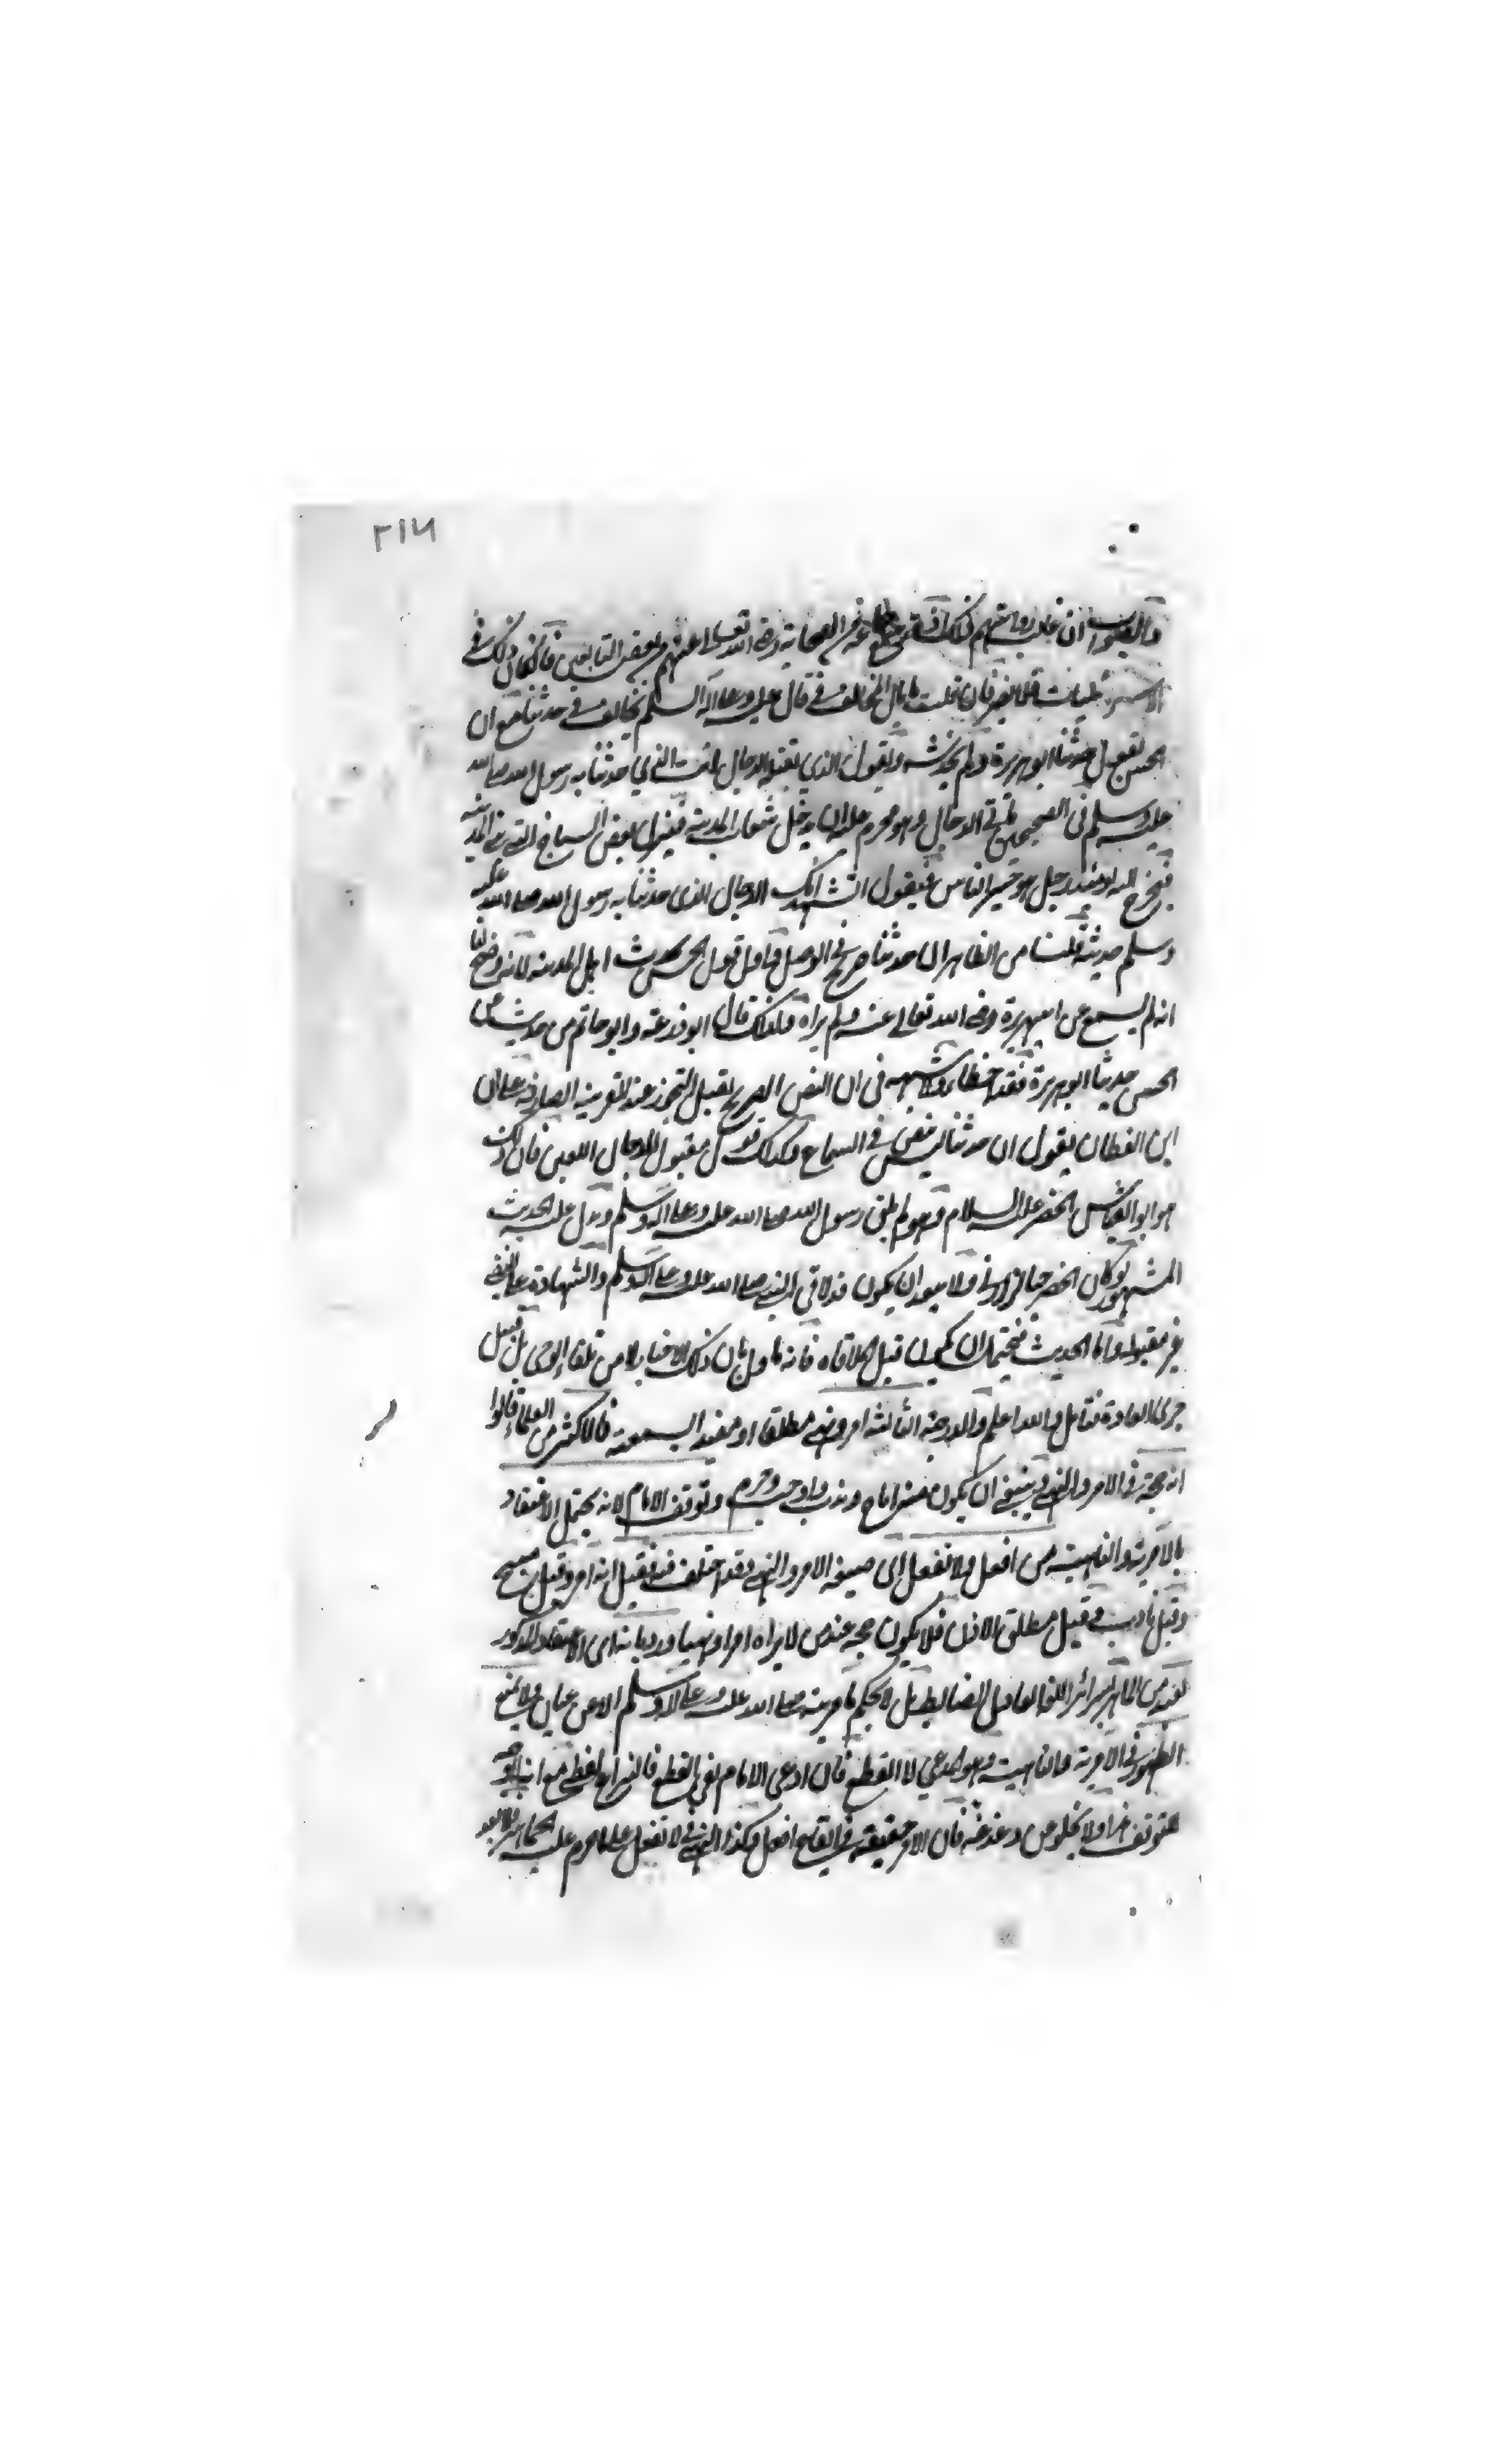 ٢١٦
والصواب ان غلب روايتهم كذلك عن الصحابة رضي الله تعالى عنهم وبعض التابعين فان كان ذلك في
فان قلت ما بال المخالف في قال عليه وعلى آله السلم يخالف في حدثنا مع ان
الحسن يقول حدثنا ابو هريرة ولم يحدثه ويقول الذي يقتله الدجال انت الذي حدثنا به رسول الله صلى الله
عليه وسلم في الصحيحين ياتي الدجال وهو محرم عليه ان يدخل نقاب المدينة فينزل بعض السباخ التي تلي المدينة
فيخرج اليه يومئذ رجل هو خير الناس فيقول اشهد انك الدجال الذي حدثنا به رسول الله صلى الله عليه
وسلم حديثه قلنا من الظاهر ان حدثنا صريح في الوصل واول قول الحسن بحدث اهل المدينة لانه وضح لنا
انه لم يسمع عن ابي هريرة رضي الله تعالى عنه ولم يراه ولذلك قال ابو زرعة وابو حاتم من حديث عن
الحسن حدثنا ابو هريرة فقد اخطأ ولا شبهة في ان النص الصريح يقبل التجوز عند القرينة الصارفة على ان
ابن القطان يقول ان حدثنا ليس بنص في السماع وكذلك قول مقبول الدجال اللعين فان ذلك
هو ابو العباس الخضر عليه السلام وهو لم يلق رسول الله صلى الله عليه وعلى آله وسلم ويدل عليه الحديث
المشهور لو كان الخضر حيا لزارني ولا يبعد ان يكون قد لاقى النبي صلى الله عليه وعلى آله وسلم والشهادة على النفي
غير مقبولة واما الحديث فيحتمل ان يكون قبل الملاقاة فانه ماول بان ذلك الاخبار لا من تلقاء الوحي بل من قبيل
جري العادة فتامل والله اعلم والدرجة الثالثة امر ونهى مطلقا او مفيد السمعة فالاكثر من العلماء قالوا
انه حجة في الامر والنهي وينبغي ان يكون مثل اباح وندب واوجب وحرم وتوقف الامام لانه يحتمل الاعتقاد
بالآمرية والناهية من افعل ولا تفعل اي صيغة الامر والنهي وقد اختلف فيه فقيل انه امر وقيل مبيح
وقيل نادب وقيل مطلق الاذن فلا يكون حجة عند من لا يراه امرا ونهيا ورد بانه اي الاعتقاد المذكور
بعيد من الماهر بسرائر اللغة العادل الضابط بل لا يحكم بآمريته صلى الله عليه وعلى آله وسلم الا عن عيان ولا يمنع
الظهور في الآمرية والناهية وهو المدعى لا القطع فان ادعى الامام نفي القطع فالنزاع لفظي مع انه لا وجه
للتوقف هذا ولا يخلو عن دغدغة فان الامر حقيقة في ايقاع افعل وكذا النهي في لا تفعل